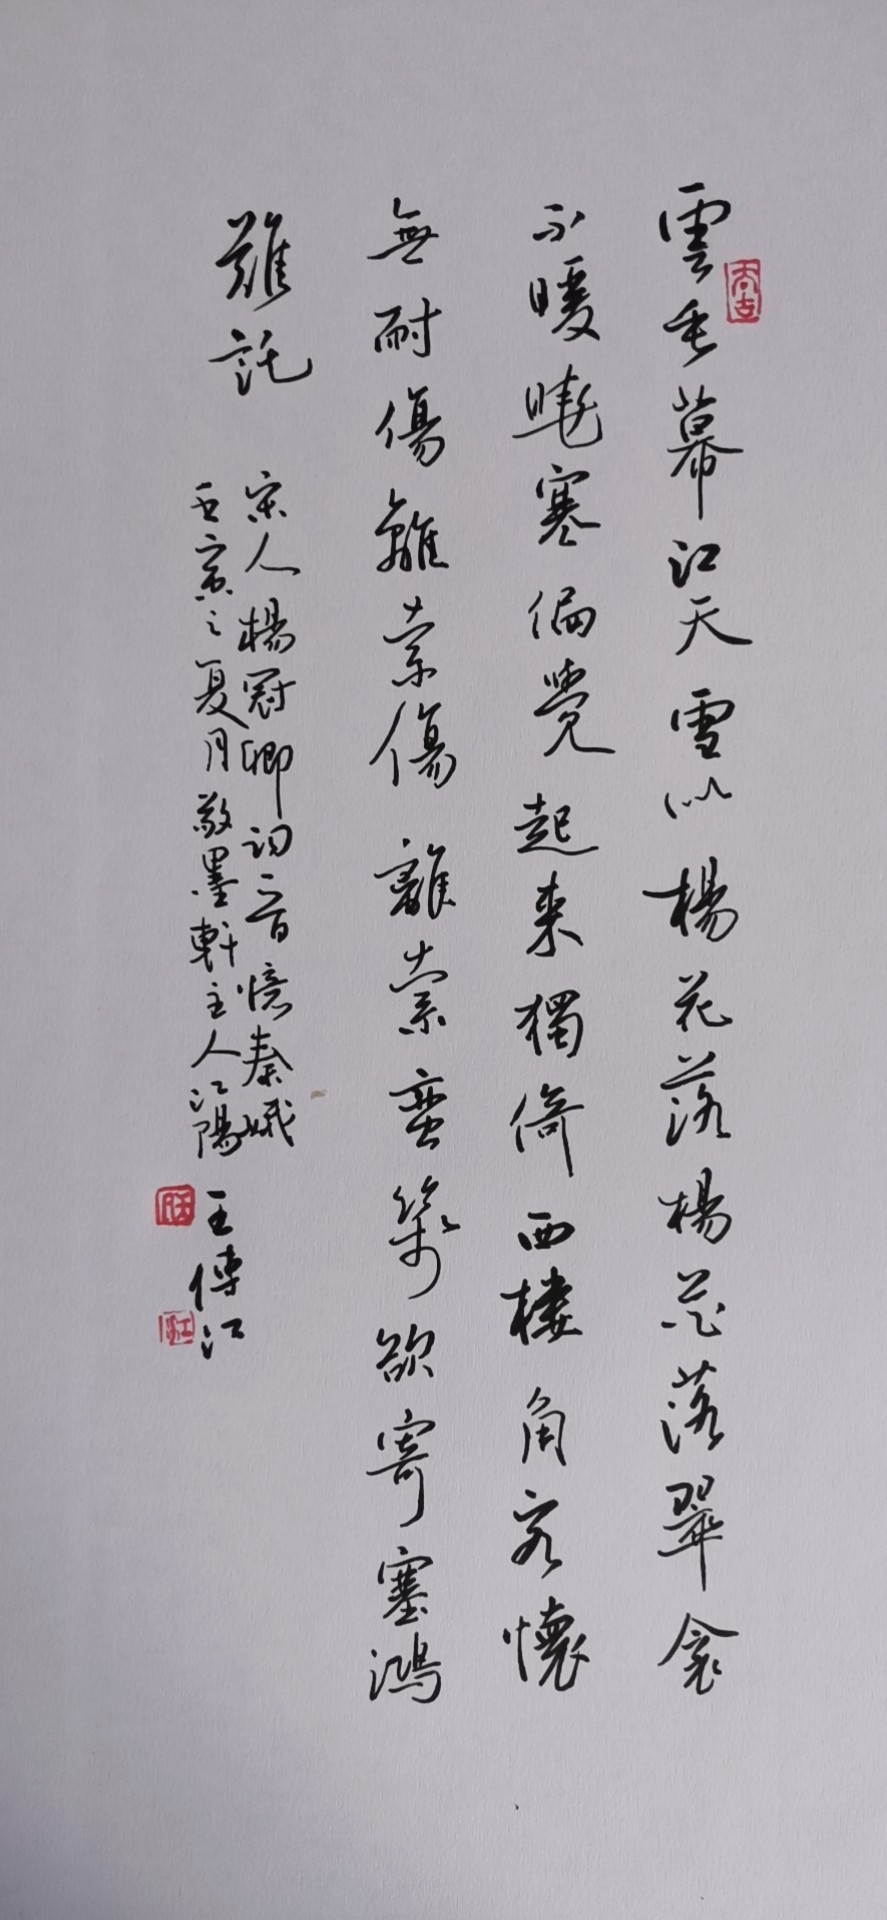 雲垂幕江天雪似楊花落楊花落翠衾
不暖曉寒偏覺起来獨倚西樓角客懷
無耐傷離索傷離索蛮箋欲寄塞鴻
難託
宋人楊冠卿词一首憶秦娥
壬寅之夏月敬墨軒主人江陽
王傳江